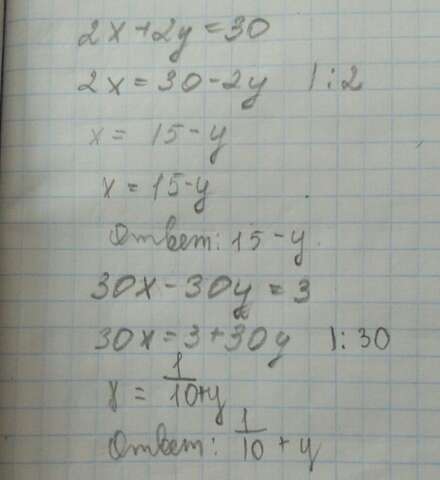 2x+2y=30
2x=30-2y |:2
x= 15-y
x=15-y
Ответ: 15-y.
30x-30y=3
30x=3+30y |:30
x = 1/10+y
Ответ: 1/10 + y